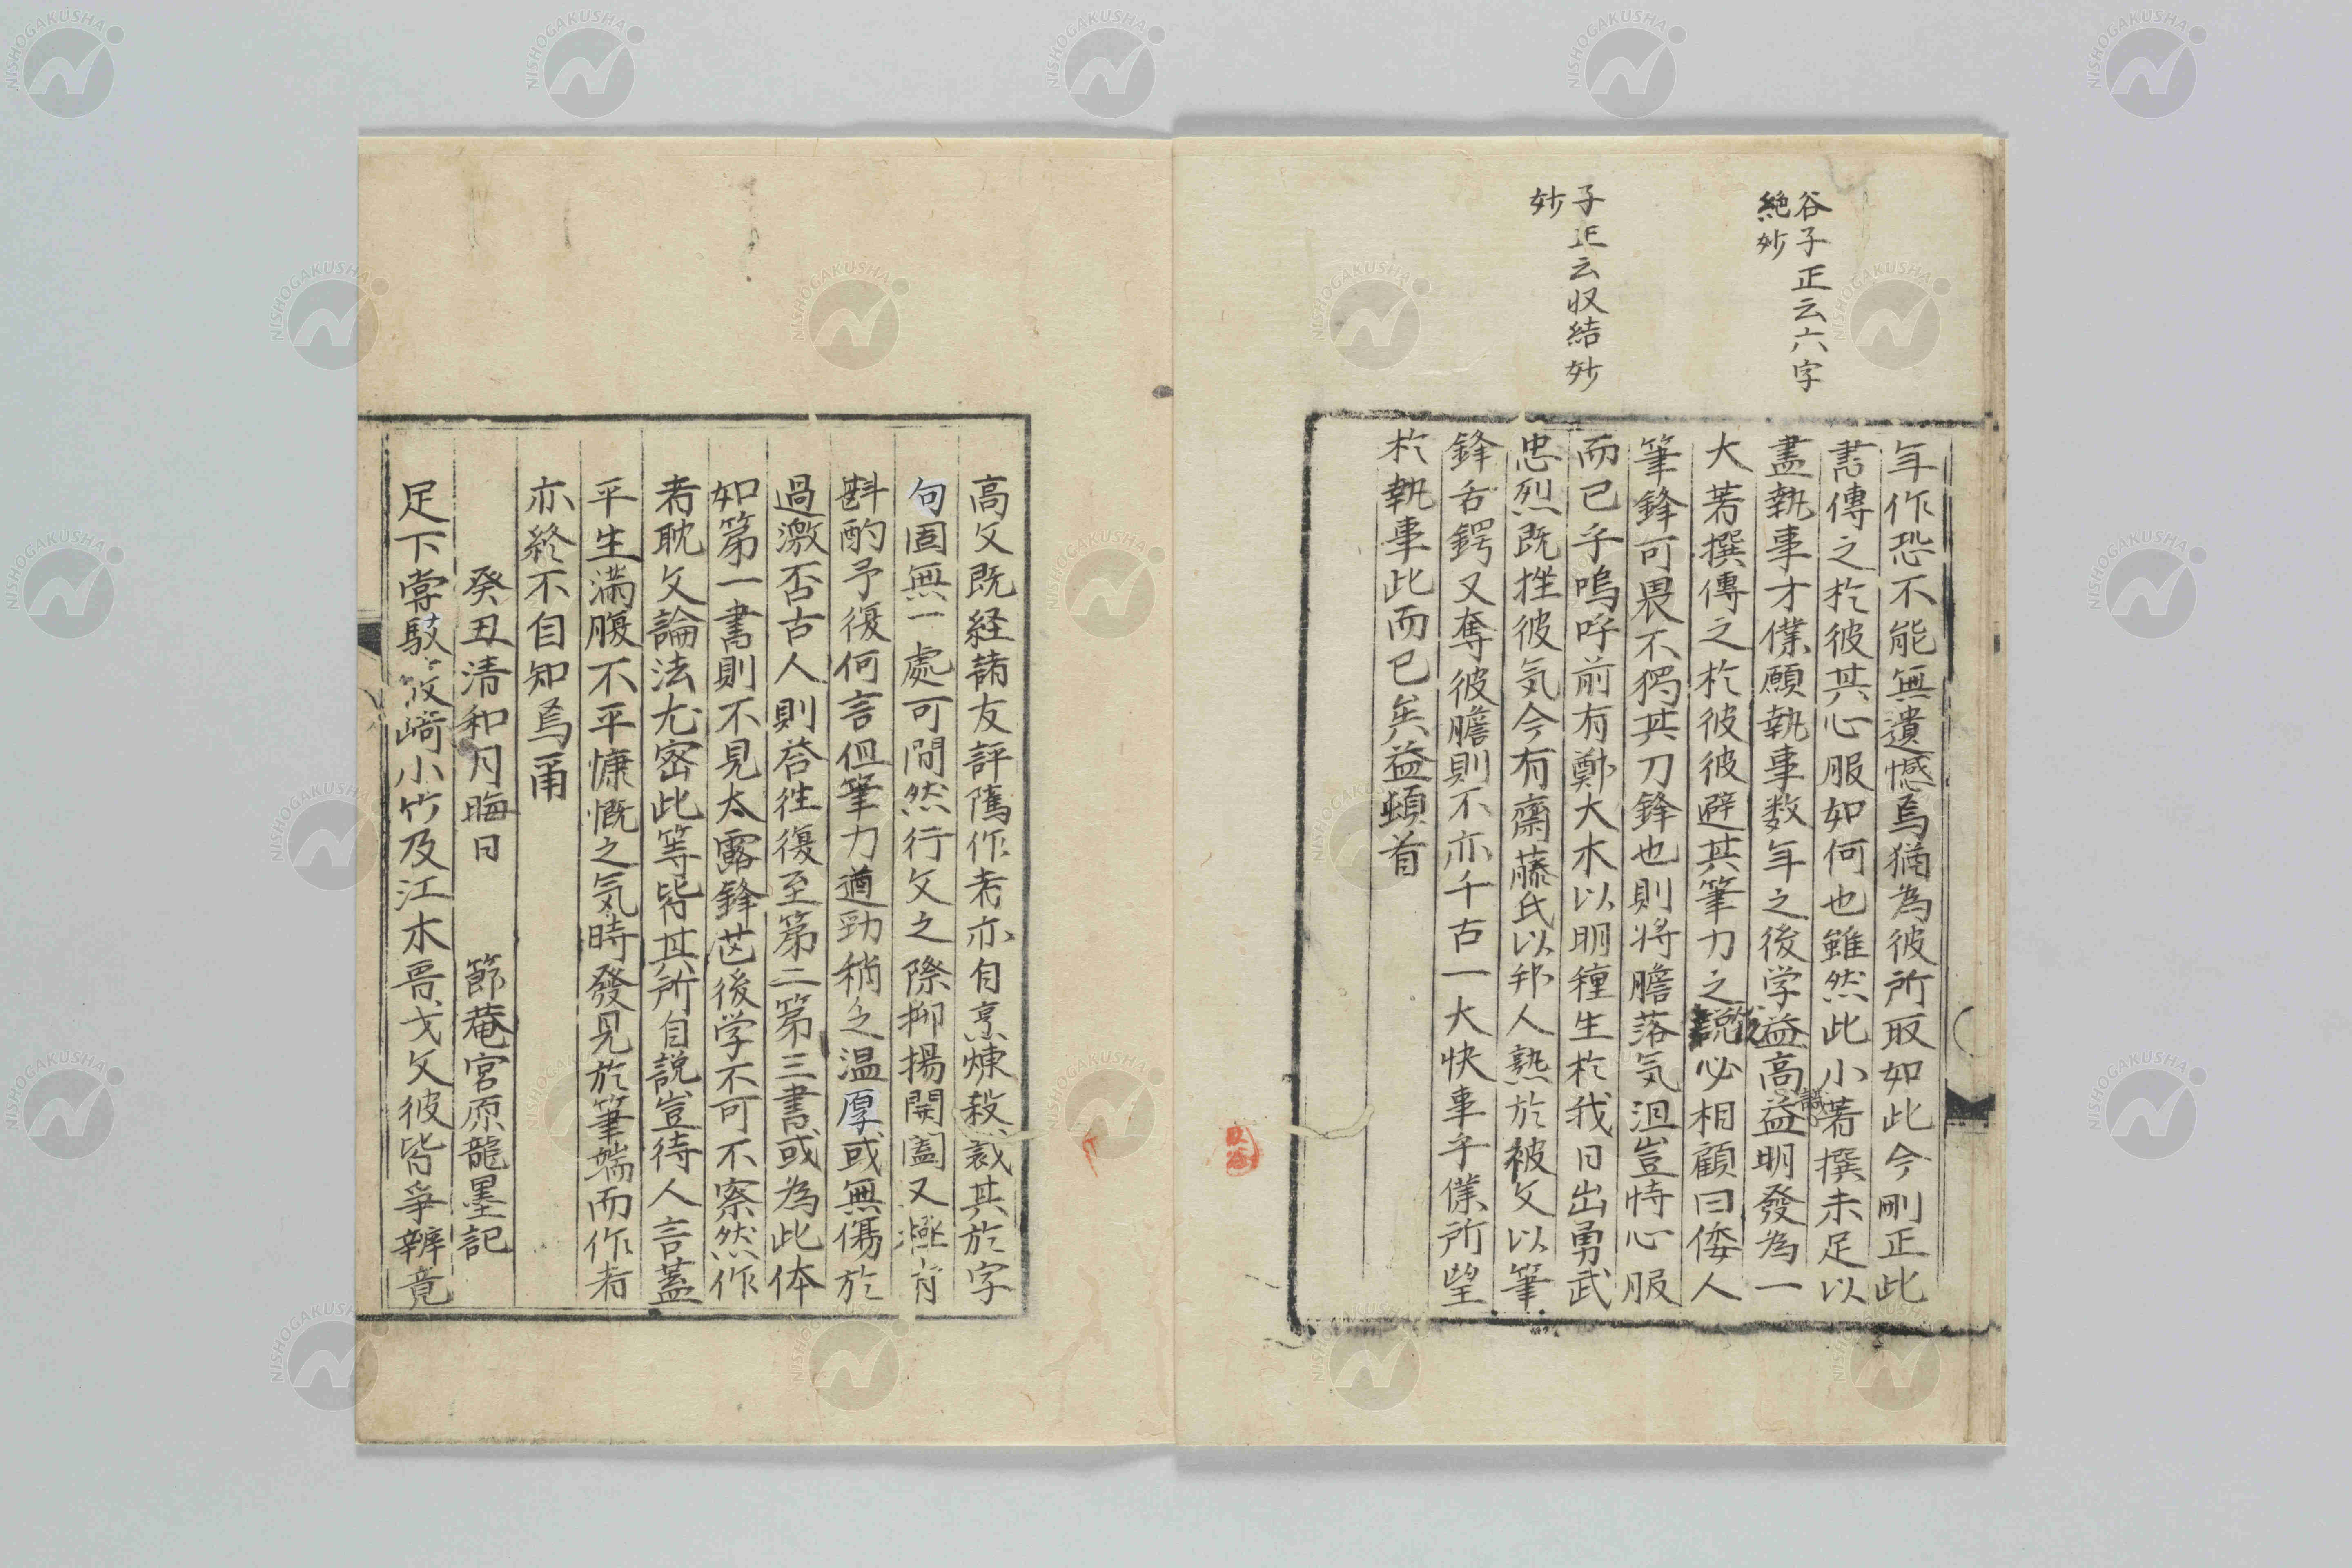 谷子正云六字
絶妙
子正云収結妙
妙
年作恐不能無遺憾焉猶為彼所取如此今刪正此
書傳之於彼其心服如何也雖然此小著撰未足以
盡執事才僕願執事数年之後学益高識益明發為一
大著撰傳之於彼彼避其筆力之必相顧曰倭人
筆鋒可畏不獨其刀鋒也則将膽落気沮豈特心服
而已乎嗚呼前有鄭大木以明種生於我日出勇武
忠烈既挫彼気今有齋藤氏以邦人熟於被文以筆
鋒舌鍔又奪彼膽則不亦千古一大快事乎僕所望
於執事此而已矣益頓首
高文既経諸友評隲作者亦自烹煉殺裁其於字
句固無一處可間然行文之際抑揚開闔又極有
斟酌予復何言但筆力遒勁稍乏温厚或無傷於
過激否古人則答往復至第二第三書或為此体
如第一書則不見太露鋒芒後学不可不察然作
者耽文論法尤密此等皆其所自説豈待人言蓋
平生満腹不平慷慨之気時發見於筆端而作者
亦終不自知焉甭
癸丑清和月晦日 節菴宮原龍墨記
足下嘗駁筱﨑小竹及江木哥戈文彼皆爭辨竟
NISHOGAKUSHA